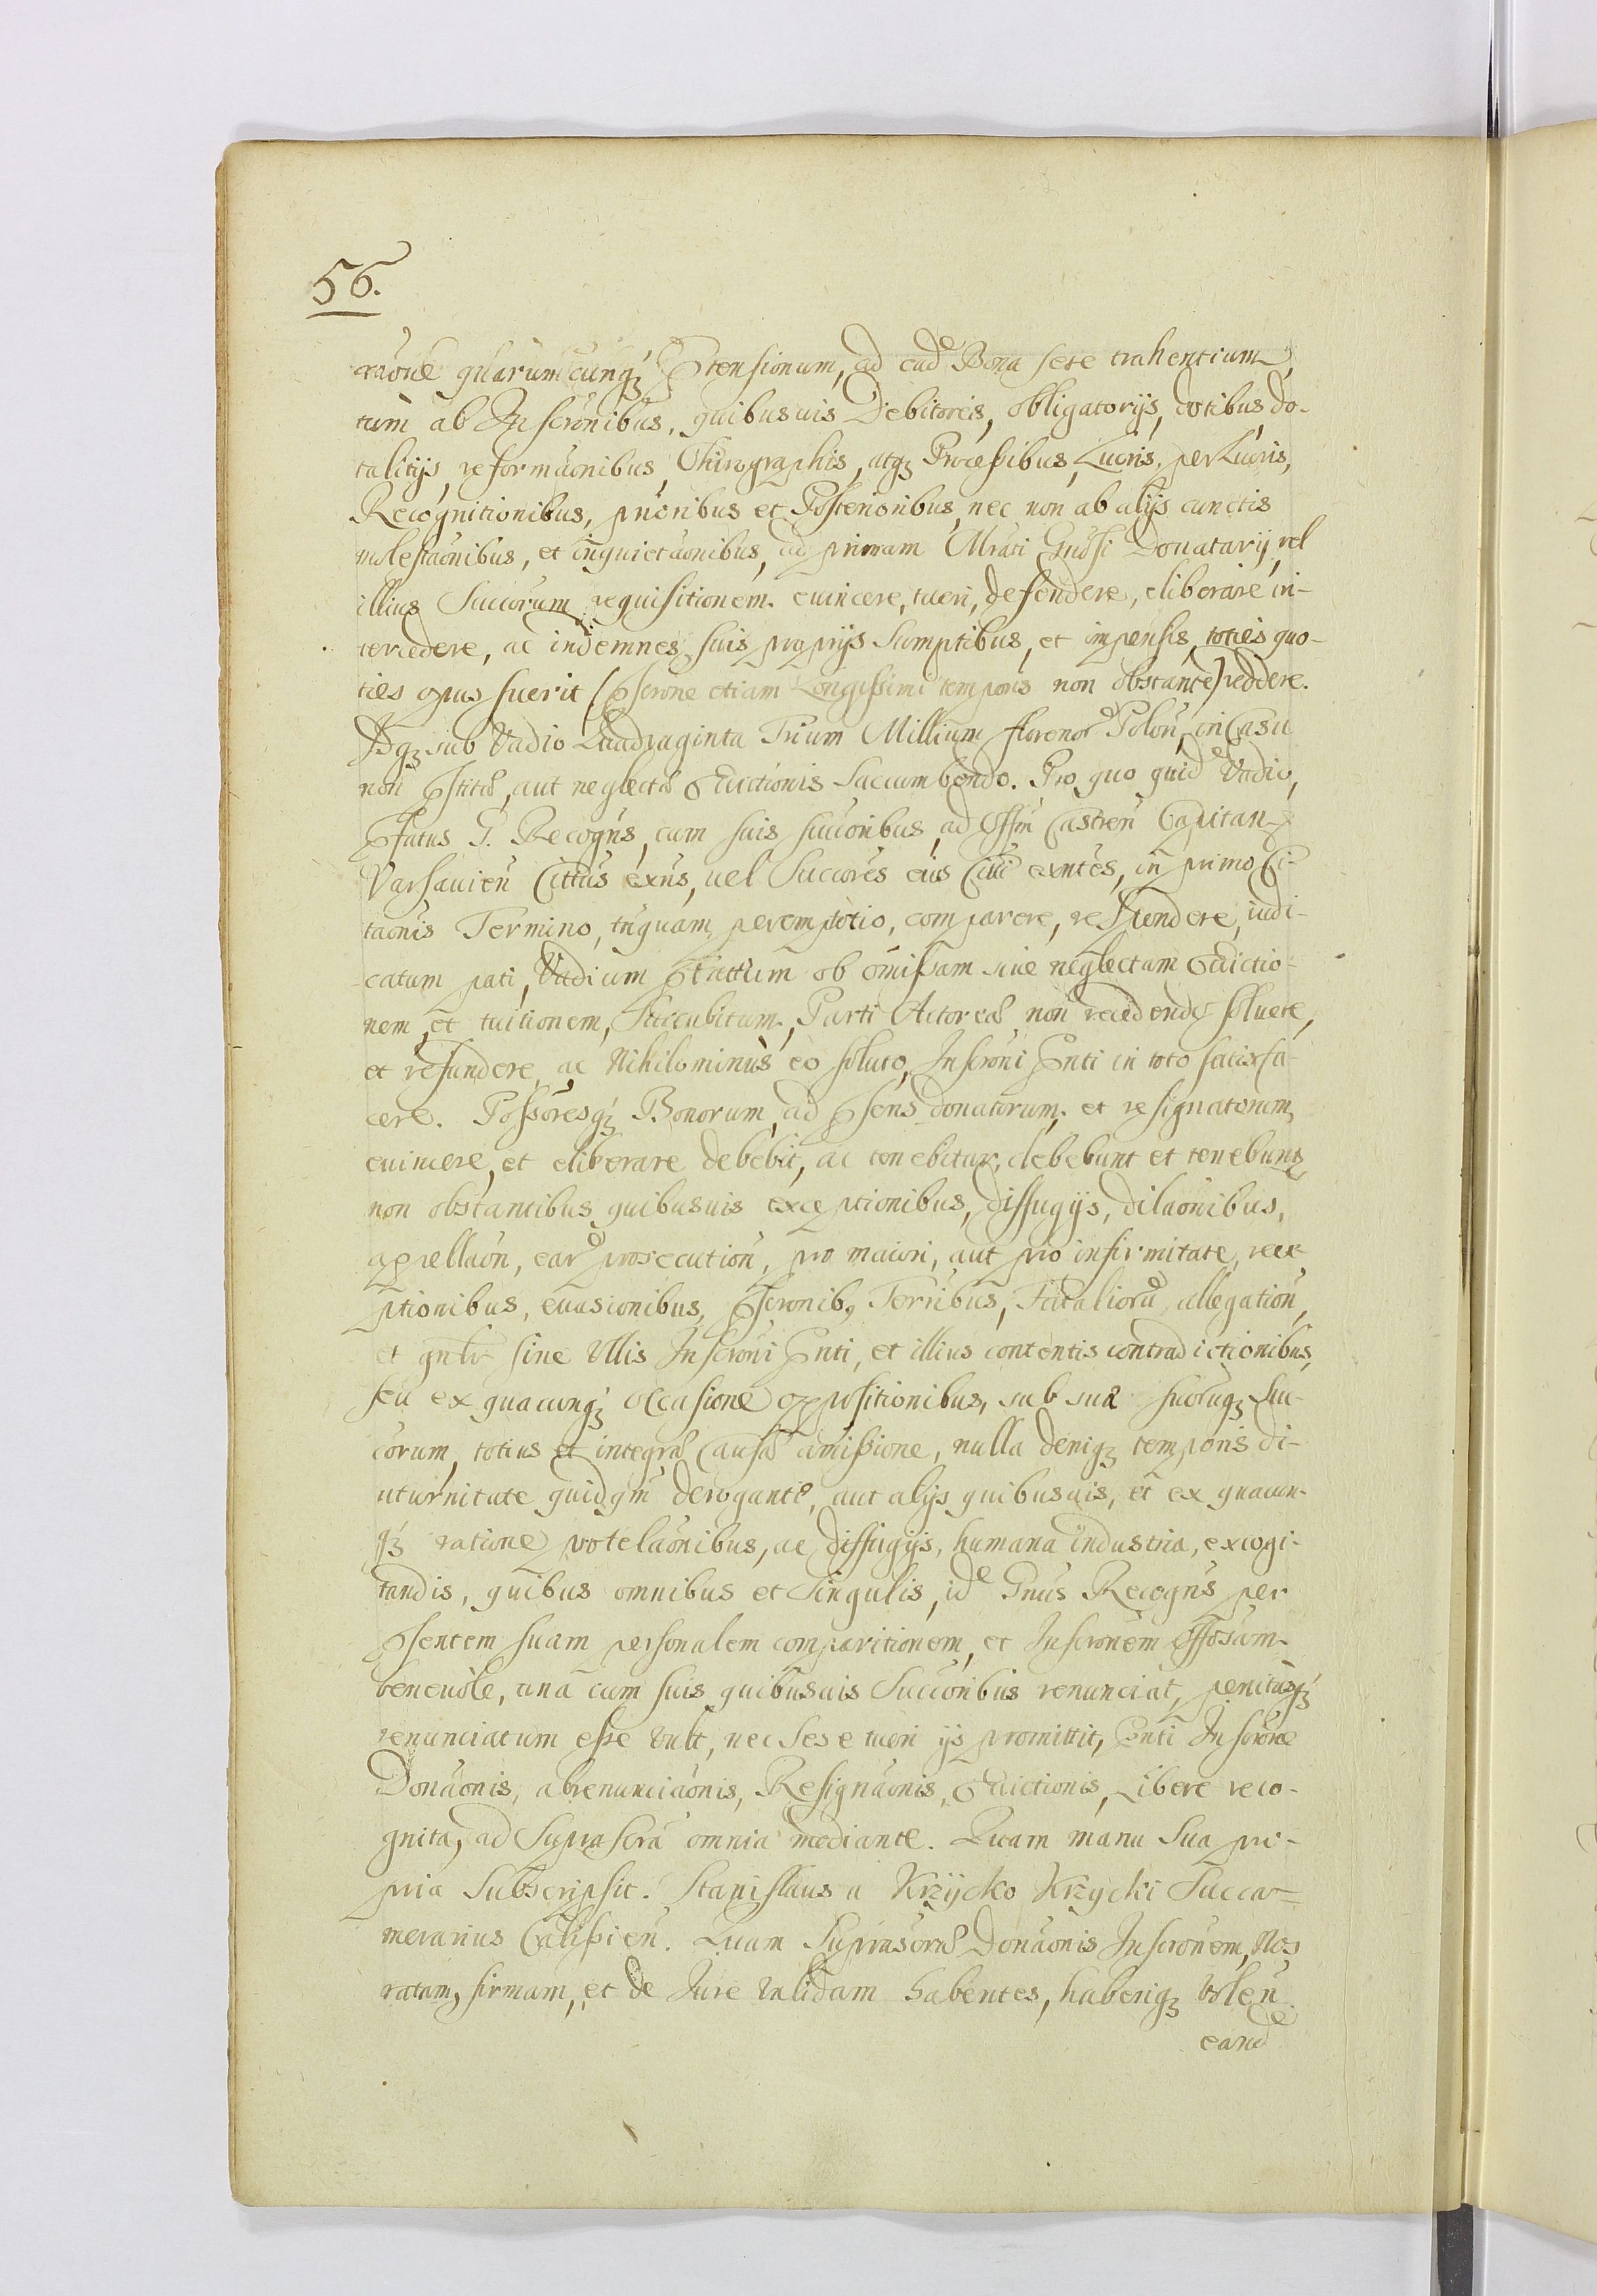 56.
raõne quarumcunqȝ Ptensionum, ad ead Bona sese trahentium,
tum ab Inscrõnibus, quibusuis Debitoreis, obligatorijs, dotibus do-
talitijs, reformãonibus, Chirographis, atqȝ Processibus, Lucris, perLucris,
Recognitionibus, prioribus et Posterioribus, nec non ab alijs cunctis
molestaõnibus, et inquietaõnibus, ad primam Mrati Gndsi Donatarij, vel
illius Succorum requisitionem. euincere, tueri, defendere, eliberare in-
tercedere, ac indemnes suis proprijs Sumptibus, et impensis, toties quo-
ties opus fuerit (Pscrõne etiam Longissimi temporis non obstante) reddere.
Idqȝ sub Vadio Quadraginta Trium Millium florenor Polon, in Casu
non Pstitæ, aut neglectæ Euictionis Succumbendo. Pro quo quid Vadio,
Pfatus G. Recogns, cum suis succoribus, ad Offm Castren Capitan
Varsauien Cittus exns, uel Succores eius Citti exntes, in primo Ci-
taõnis Termino, tnquam peremptorio, comparere, respondere, iudi-
catum pati, Vadium Pfattum ob omissam siue neglectam Euictio-
nem, et tuitionem, Succubitum, Parti Actoreæ non recedendo soluere,
et refundere, ac Nihilominus eo soluto, Inscrõni Pnti in toto satisfa-
cere. Possoresqȝ Bonorum, ad Psens donatorum, et resignatorum,
euincere, et eliberare debebit, ac tenebitur, debebunt et tenebunt
non obstantibus quibusuis exceptionibus, diffugijs, dilaõnibus,
appellaõn, ear prosecution, pro maiori, aut pro infirmitate, rece-
ptionibus, euasionibus, Pscronibȝ Terribus, Fataliorũ allegation,
et gnlr sine Vllis Inscroni Pnti, et illius contentis contradictionibus,
seu ex quacunqȝ occasione oppositionibus, sub sua suorumqȝ Suc-
corum, totius et integræ Causæ amissione, nulla deniqȝ temporis di-
uturnitate quidqm derogante, aut alijs quibusuis, et ex quacun-
qȝ ratione protelaõnibus, ac diffugijs, humana industria, excogi-
tandis, quibus omnibus et Singulis, id Gnus Recogns per
Psentem suam personalem comparitionem, et Inscronem Offosam
beneuole, una cum suis quibusuis Succoribus renunciat, penitusqȝ
renunciatum esse vult, nec Sese tueri ijs promittit, Pnti Inscrõne
Donaõnis, abrenunciaõnis, Resignaõnis, Euictionis, Libere reco-
gnita, ad Suprascra omnia mediante. Quam manu Sua pro-
pria Subscripsit. Stanislaus a Krzycko Krzycki Succa-
merarius Calissien. Quam Suprascræ Donaõnis Inscronem, Nos
ratam, firmam, et de Iure validam habentes, haberiqȝ volen
eand